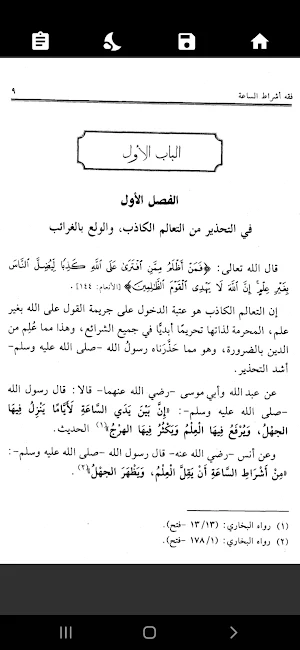 فقه أشراط الساعة ٩
الباب الأول
الفصل الأول
في التحذير من التعالم الكاذب، والولع بالغرائب
قال الله تعالى: ﴿فَمَنْ أَظْلَمُ مِمَّنِ ٱفْتَرَىٰ عَلَى ٱللَّهِ كَذِبًا لِيُضِلَّ ٱلنَّاسَ
بِغَيْرِ عِلْمٍ إِنَّ ٱللَّهَ لَا يَهْدِى ٱلْقَوْمَ ٱلظَّٰلِمِينَ﴾ [الأنعام: ١٤٤].
إن التعالم الكاذب هو عتبة الدخول على جريمة القول على الله بغير
علم، المحرمة لذاتها تحريمًا أبديًّا في جميع الشرائع، وهذا مما عُلِم من
الدين بالضرورة، وهو مما حَذَّرَناه رسولُ الله –صلى الله عليه وسلم–
أشد التحذير.
عن عبد الله وأبي موسى –رضي الله عنهما– قالا: قال رسول الله
–صلى الله عليه وسلم–: «إِنَّ بَيْنَ يَدَيِ السَّاعَةِ لَأَيَّامًا يَنْزِلُ فِيهَا
الجهْلُ، وَيُرْفَعُ فِيهَا الْعِلْمُ وَيَكْثُرُ فِيهَا الهرْجُ»(١) الحديث.
وعن أنس –رضي الله عنه– قال: قال رسول الله –صلى الله عليه وسلم–:
«مِنْ أَشْرَاطِ السَّاعَةِ أَنْ يَقِلَّ الْعِلْمُ، وَيَظْهَرَ الجهْلُ»(٢).
(١) رواه البخاري: (١٣/١٣ –فتح).
(٢) رواه البخاري: (١٧٨/١ –فتح).